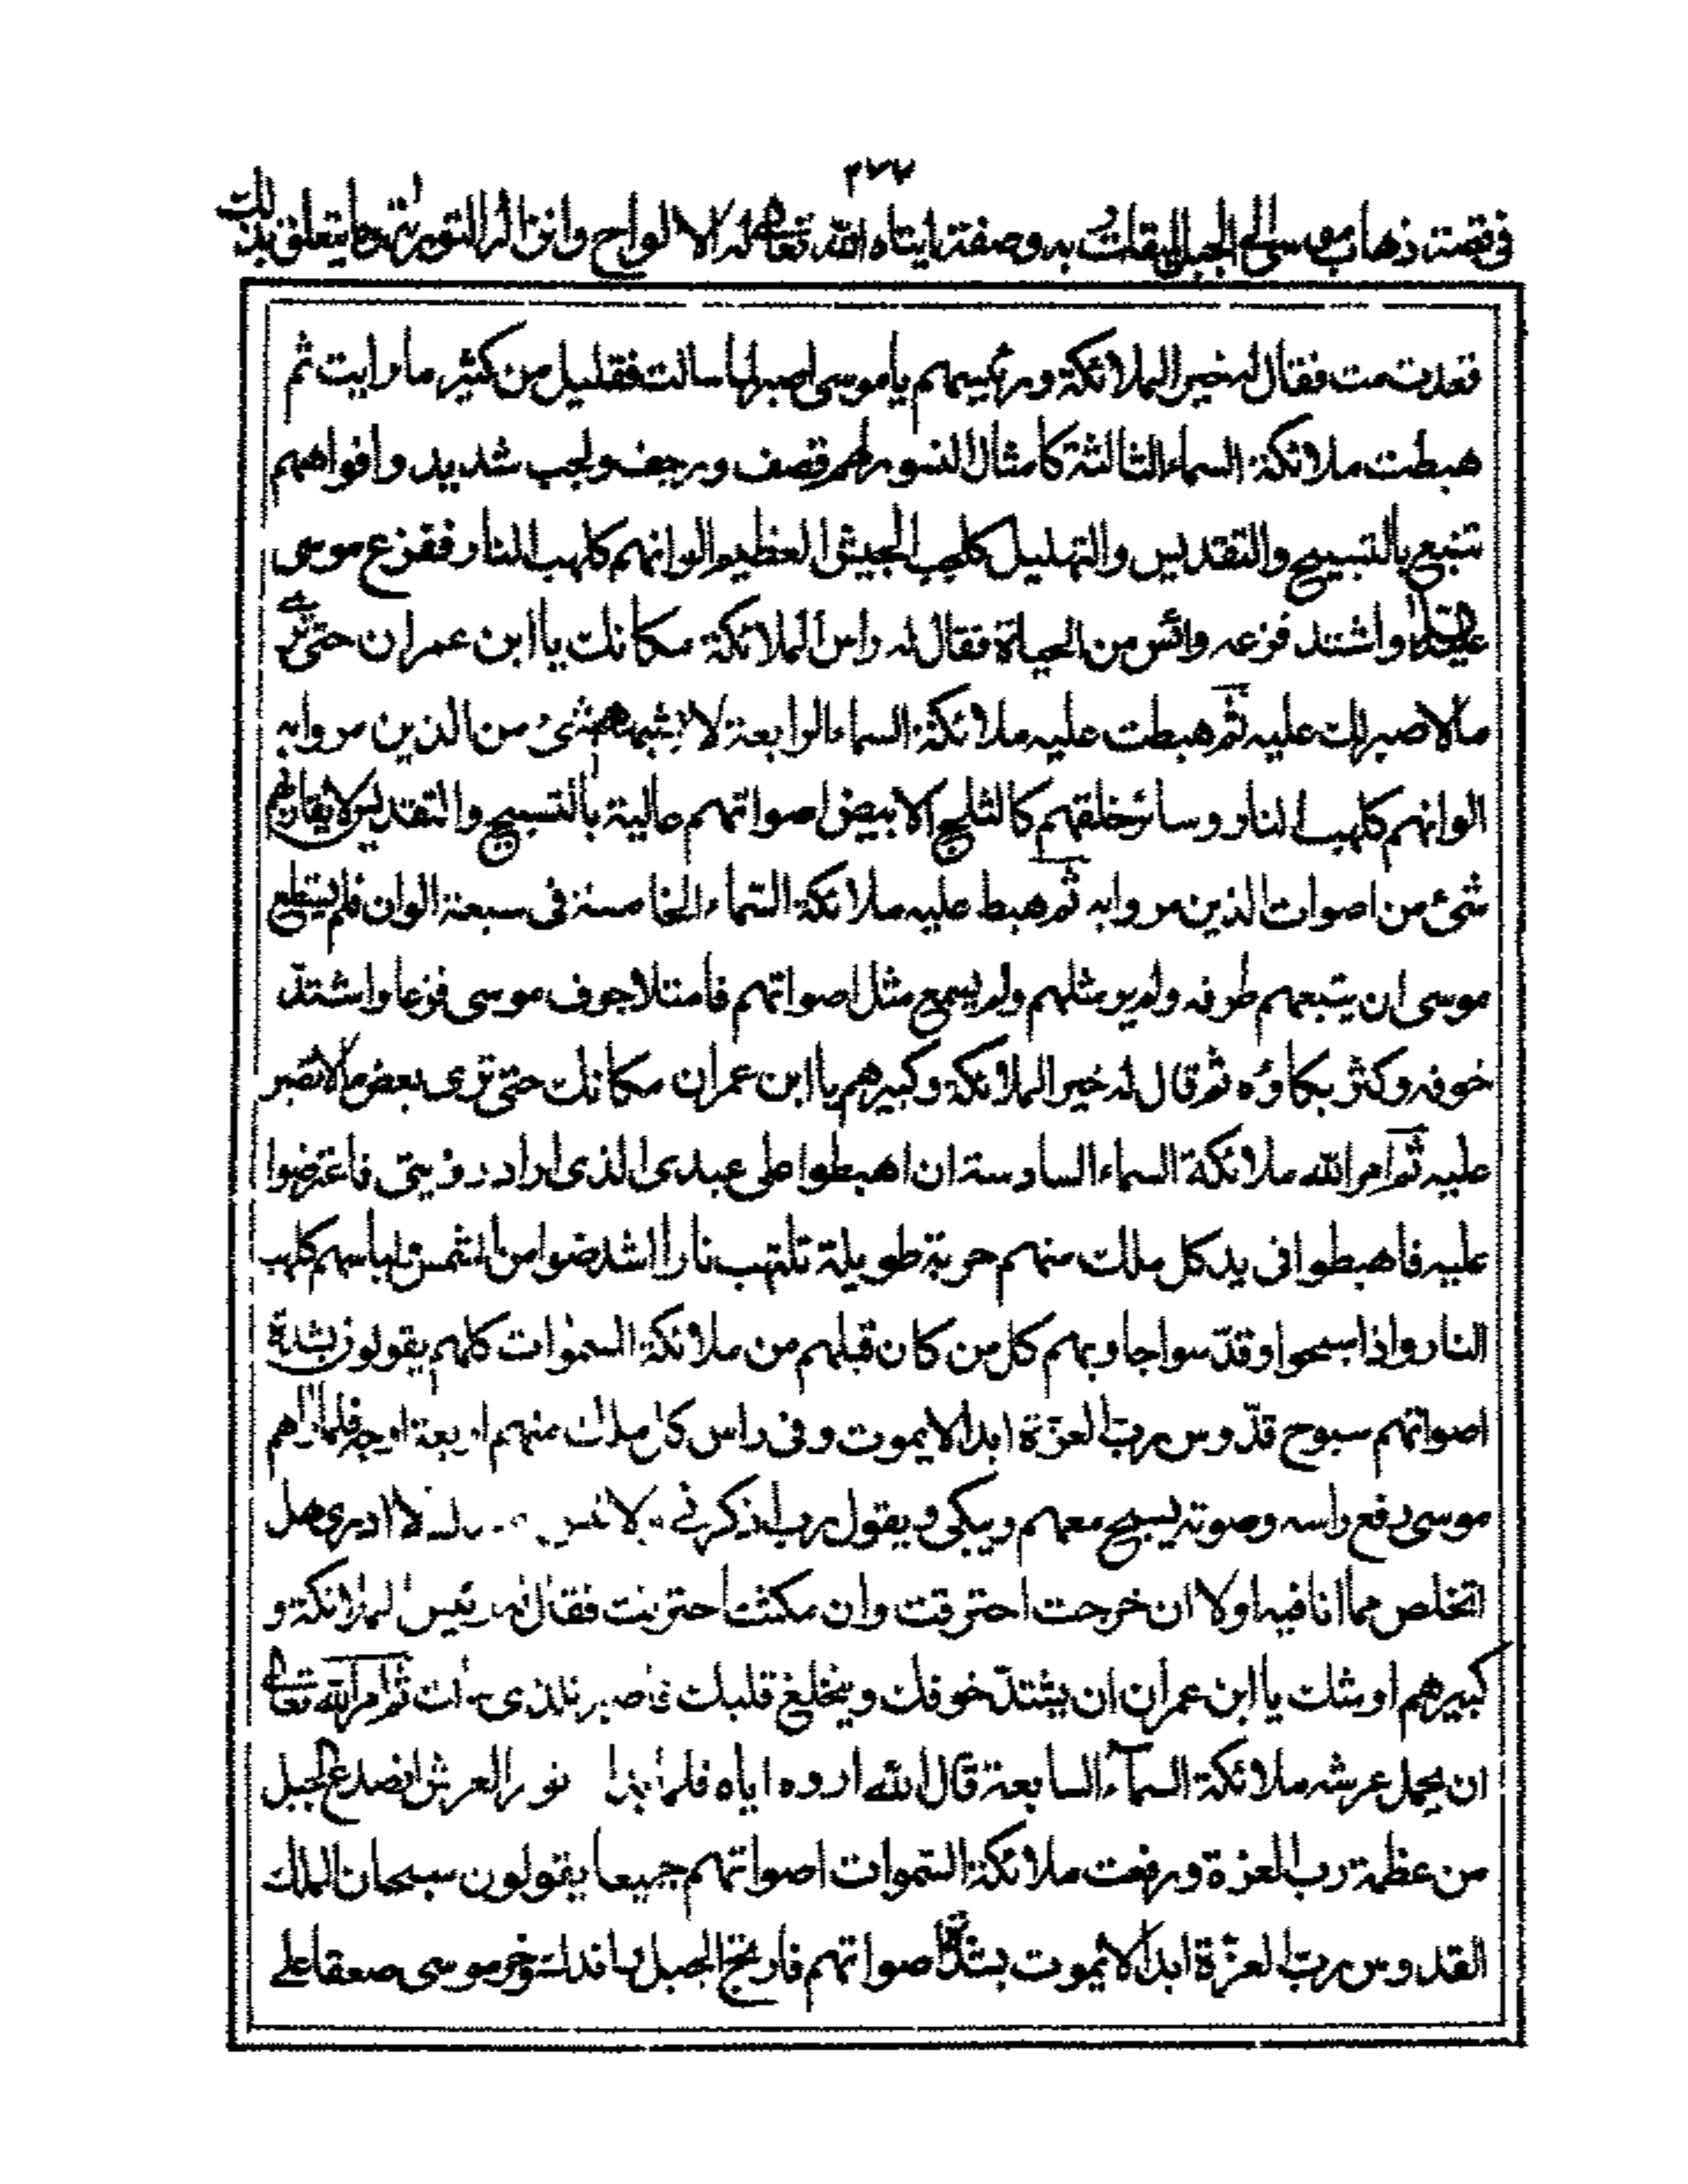 ٢٧٧
في قصة ذهاب موسى الى الجبل لميقات ربه وصفة ايتاه الله تعالى له الالواح وانزاله التورية وما يتعلق بذلك
فقد تمت فقال له خير الملائكة ورئيسهم يا موسى اصبر لما سالت فقليل من كثير ما رايت ثم
هبطت ملائكة السماء الثالثة كامثال النسور لهم قصف ورجف ولجب شديد وافواههم
تنبع بالتسبيح والتقديس والتهليل كلجب الجيش العظيم الوانهم كلهب النار ففزع موسى
عليه السلام واشتد فزعه وائس من الحياة فقال له راس الملائكة مكانك يا ابن عمران حتى ترى
ما لا صبر لك عليه ثم هبطت عليه ملائكة السماء الرابعة لا يشبههم شئ من الذين مروا به
الوانهم كلهب النار وسائر خلقهم كالثلج الابيض اصواتهم عالية بالتسبيح والتقديس لا يقاربهم
شئ من اصوات الذين مروا به ثم هبط عليه ملائكة السماء الخامسة في سبعة الوان فلم يستطع
موسى ان يتبعهم طرفه ولم ير مثلهم ولم يسمع مثل اصواتهم فامتلا جوف موسى فزعا واشتد
خوفه وكثر بكاؤه ثم قال له خير الملائكة وكبيرهم يا ابن عمران مكانك حتى ترى بعض ما لا تصبر
عليه ثم امر الله ملائكة السماء السادسة ان اهبطوا على عبدى الذى اراد رؤيتى فاعترضوا
عليه فاهبطوا في يد كل ملك منهم حربة طويلة تلتهب نارا اشد ضوا من الشمس لباسهم كلهب
النار واذا سبحوا وقدسوا جاوبهم كل من كان قبلهم من ملائكة السموات كلهم يقولون بشدة
اصواتهم سبوح قدوس رب العزة ابدا لا يموت وفى راس كل ملك منهم اربعة اوجه فلما راهم
موسى رفع راسه وصوته يسبح معهم ويبكى ويقول رب اذكرنى لا ادرى هل
اتخلص مما انا فيه اولا ان خرجت احترقت وان مكثت احترقت فقال له رئيس الملائكة و
كبيرهم اوشكت يا ابن عمران ان يشتد خوفك وينخلع قلبك فاصبر للذى سالت ثم امر الله تعالى
ان يحمل عرشه ملائكة السماء السابعة قال الله اروه اياه فلما بدا نور العرش انصدع الجبل
من عظمة رب العزة ورفعت ملائكة السموات اصواتهم جميعا يقولون سبحان الملك
القدوس رب العزة ابدا لا يموت بشدة اصواتهم فارتج الجبل واندك وخر موسى صعقا على